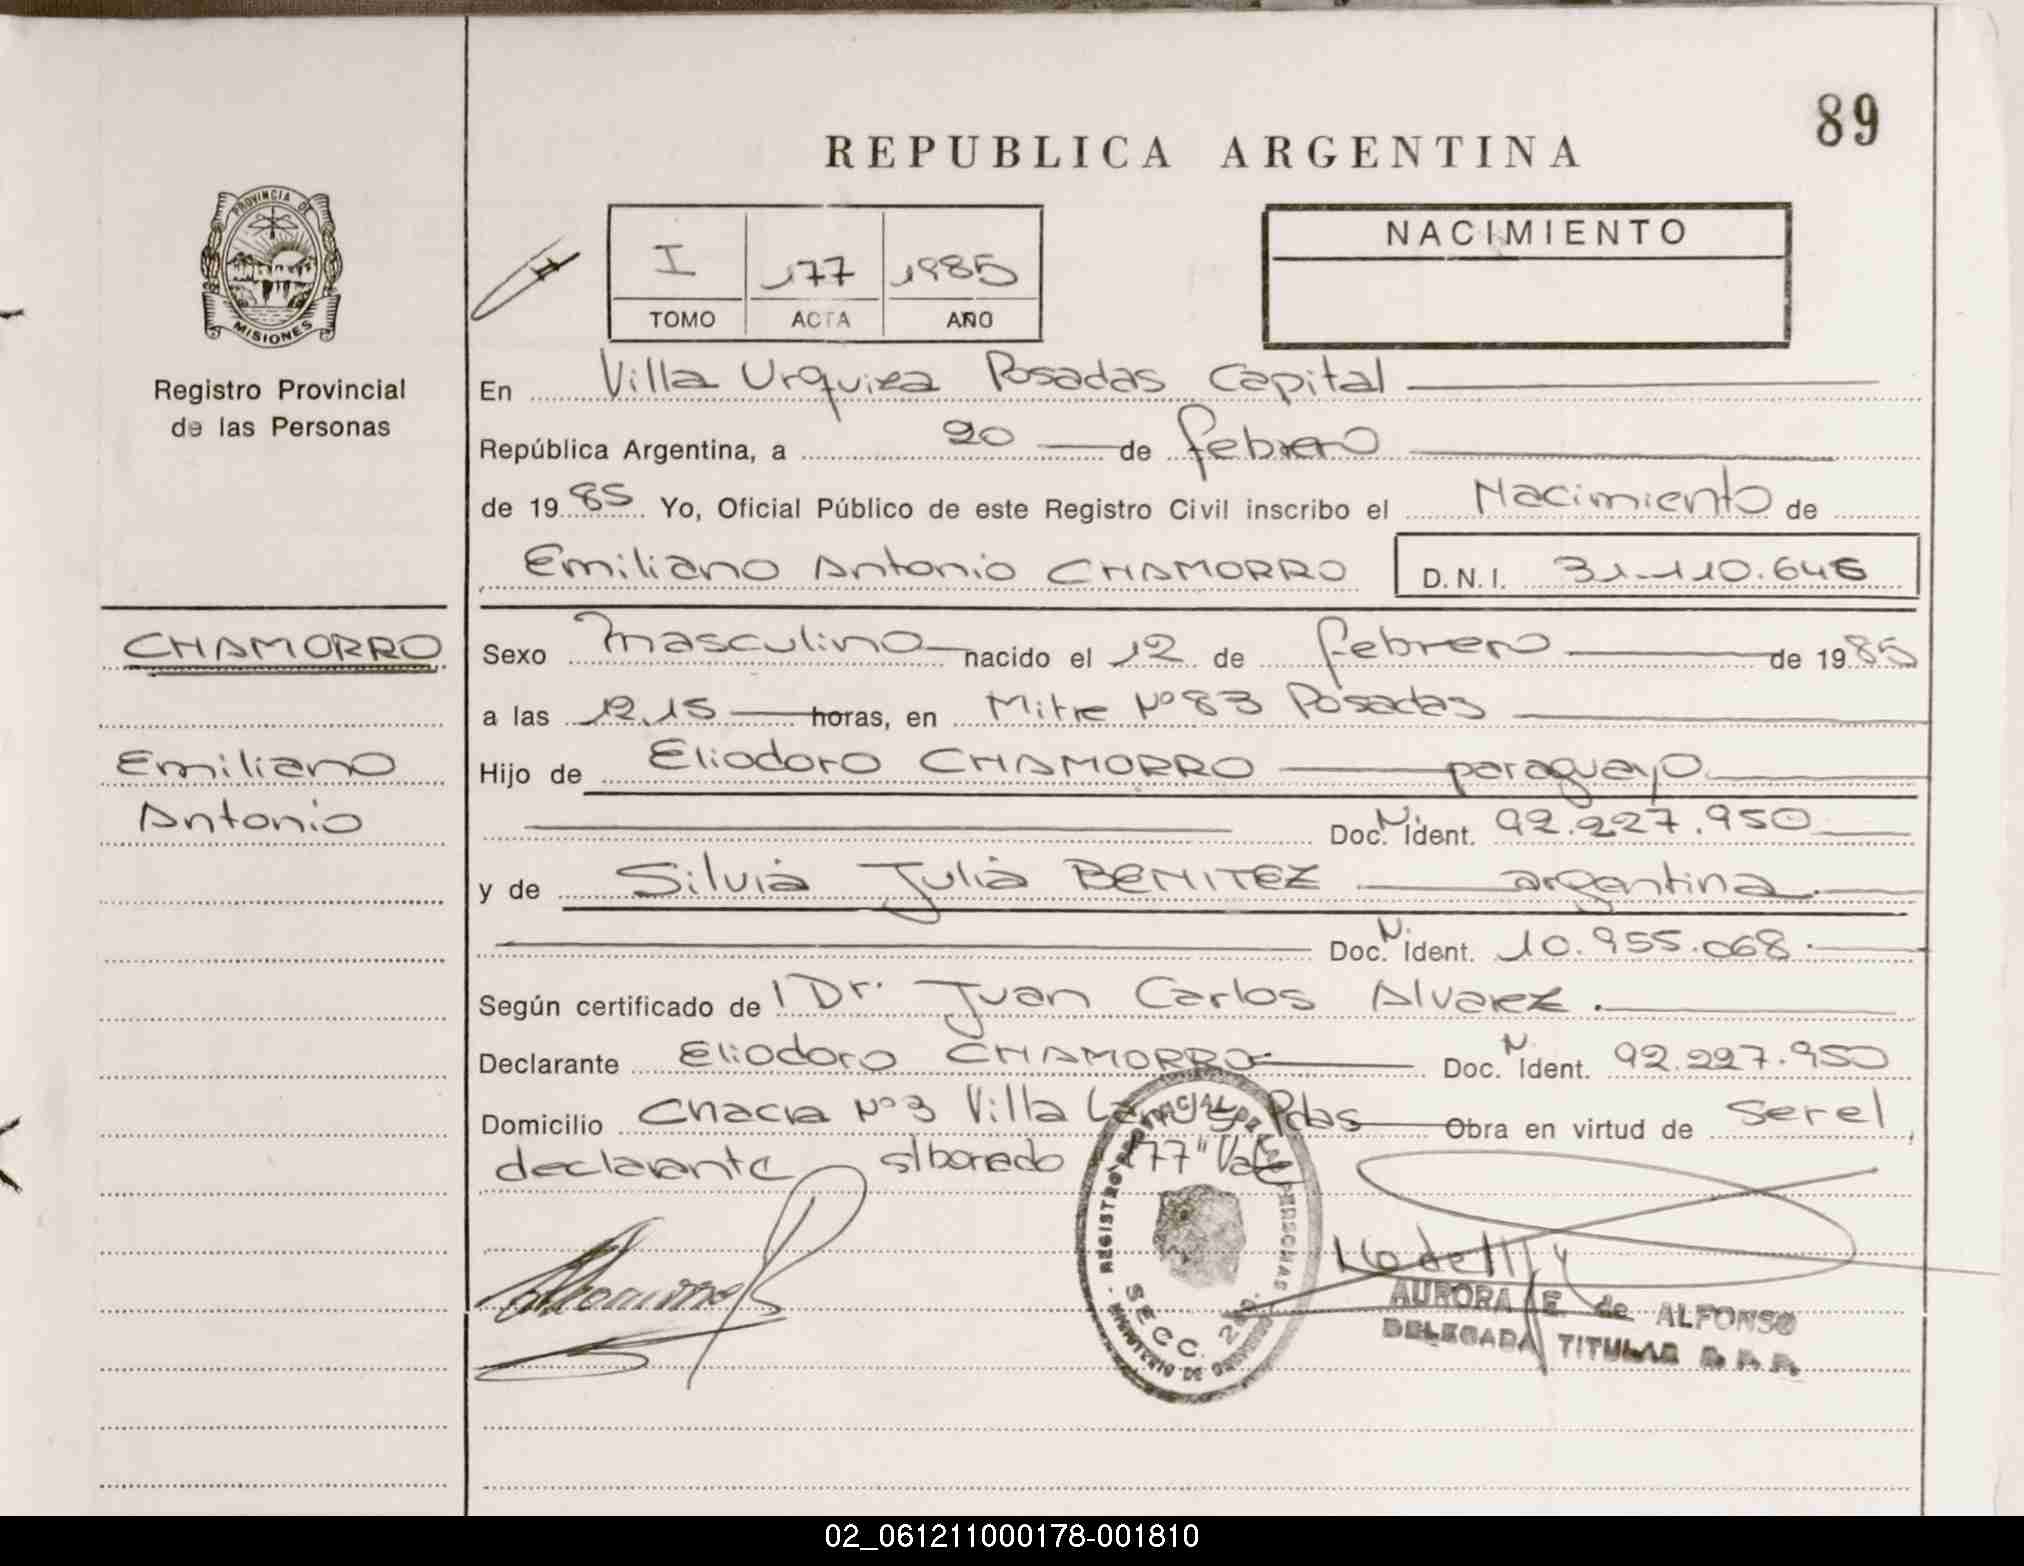 89
REPUBLICA ARGENTINA
PROVINCIA DE
MISIONES
Registro Provincial
de las Personas
I 177 1985
TOMO ACTA AÑO
NACIMIENTO
En Villa Urquiza Posadas Capital
República Argentina, a 20 de febrero
de 1985 Yo, Oficial Público de este Registro Civil inscribo el Nacimiento de
Emiliano Antonio CHAMORRO D.N.I. 31.110.646
CHAMORRO
Emiliano
Antonio
Sexo masculino nacido el 12 de febrero de 1985
a las 12,15 horas, en Mitre Nº 83 Posadas
Hijo de Eliodoro CHAMORRO paraguayo
Doc. N. Ident. 92.227.950
y de Silvia Julia BENITEZ argentina
Doc. N. Ident. 10.955.068.
Según certificado de Dr. Juan Carlos Alvarez.
Declarante Eliodoro CHAMORRO Doc. N. Ident. 92.227.950
Domicilio Chacra Nº 3 Villa Pdas Obra en virtud de Ser el
declarante s/borrado "177" Vale
REGISTRO PROVINCIAL DE LAS PERSONAS
MINISTERIO DE GOBIERNO
SECC.
AURORA E. de ALFONSO
DELEGADA TITULAR R. P. P.
02_061211000178-001810